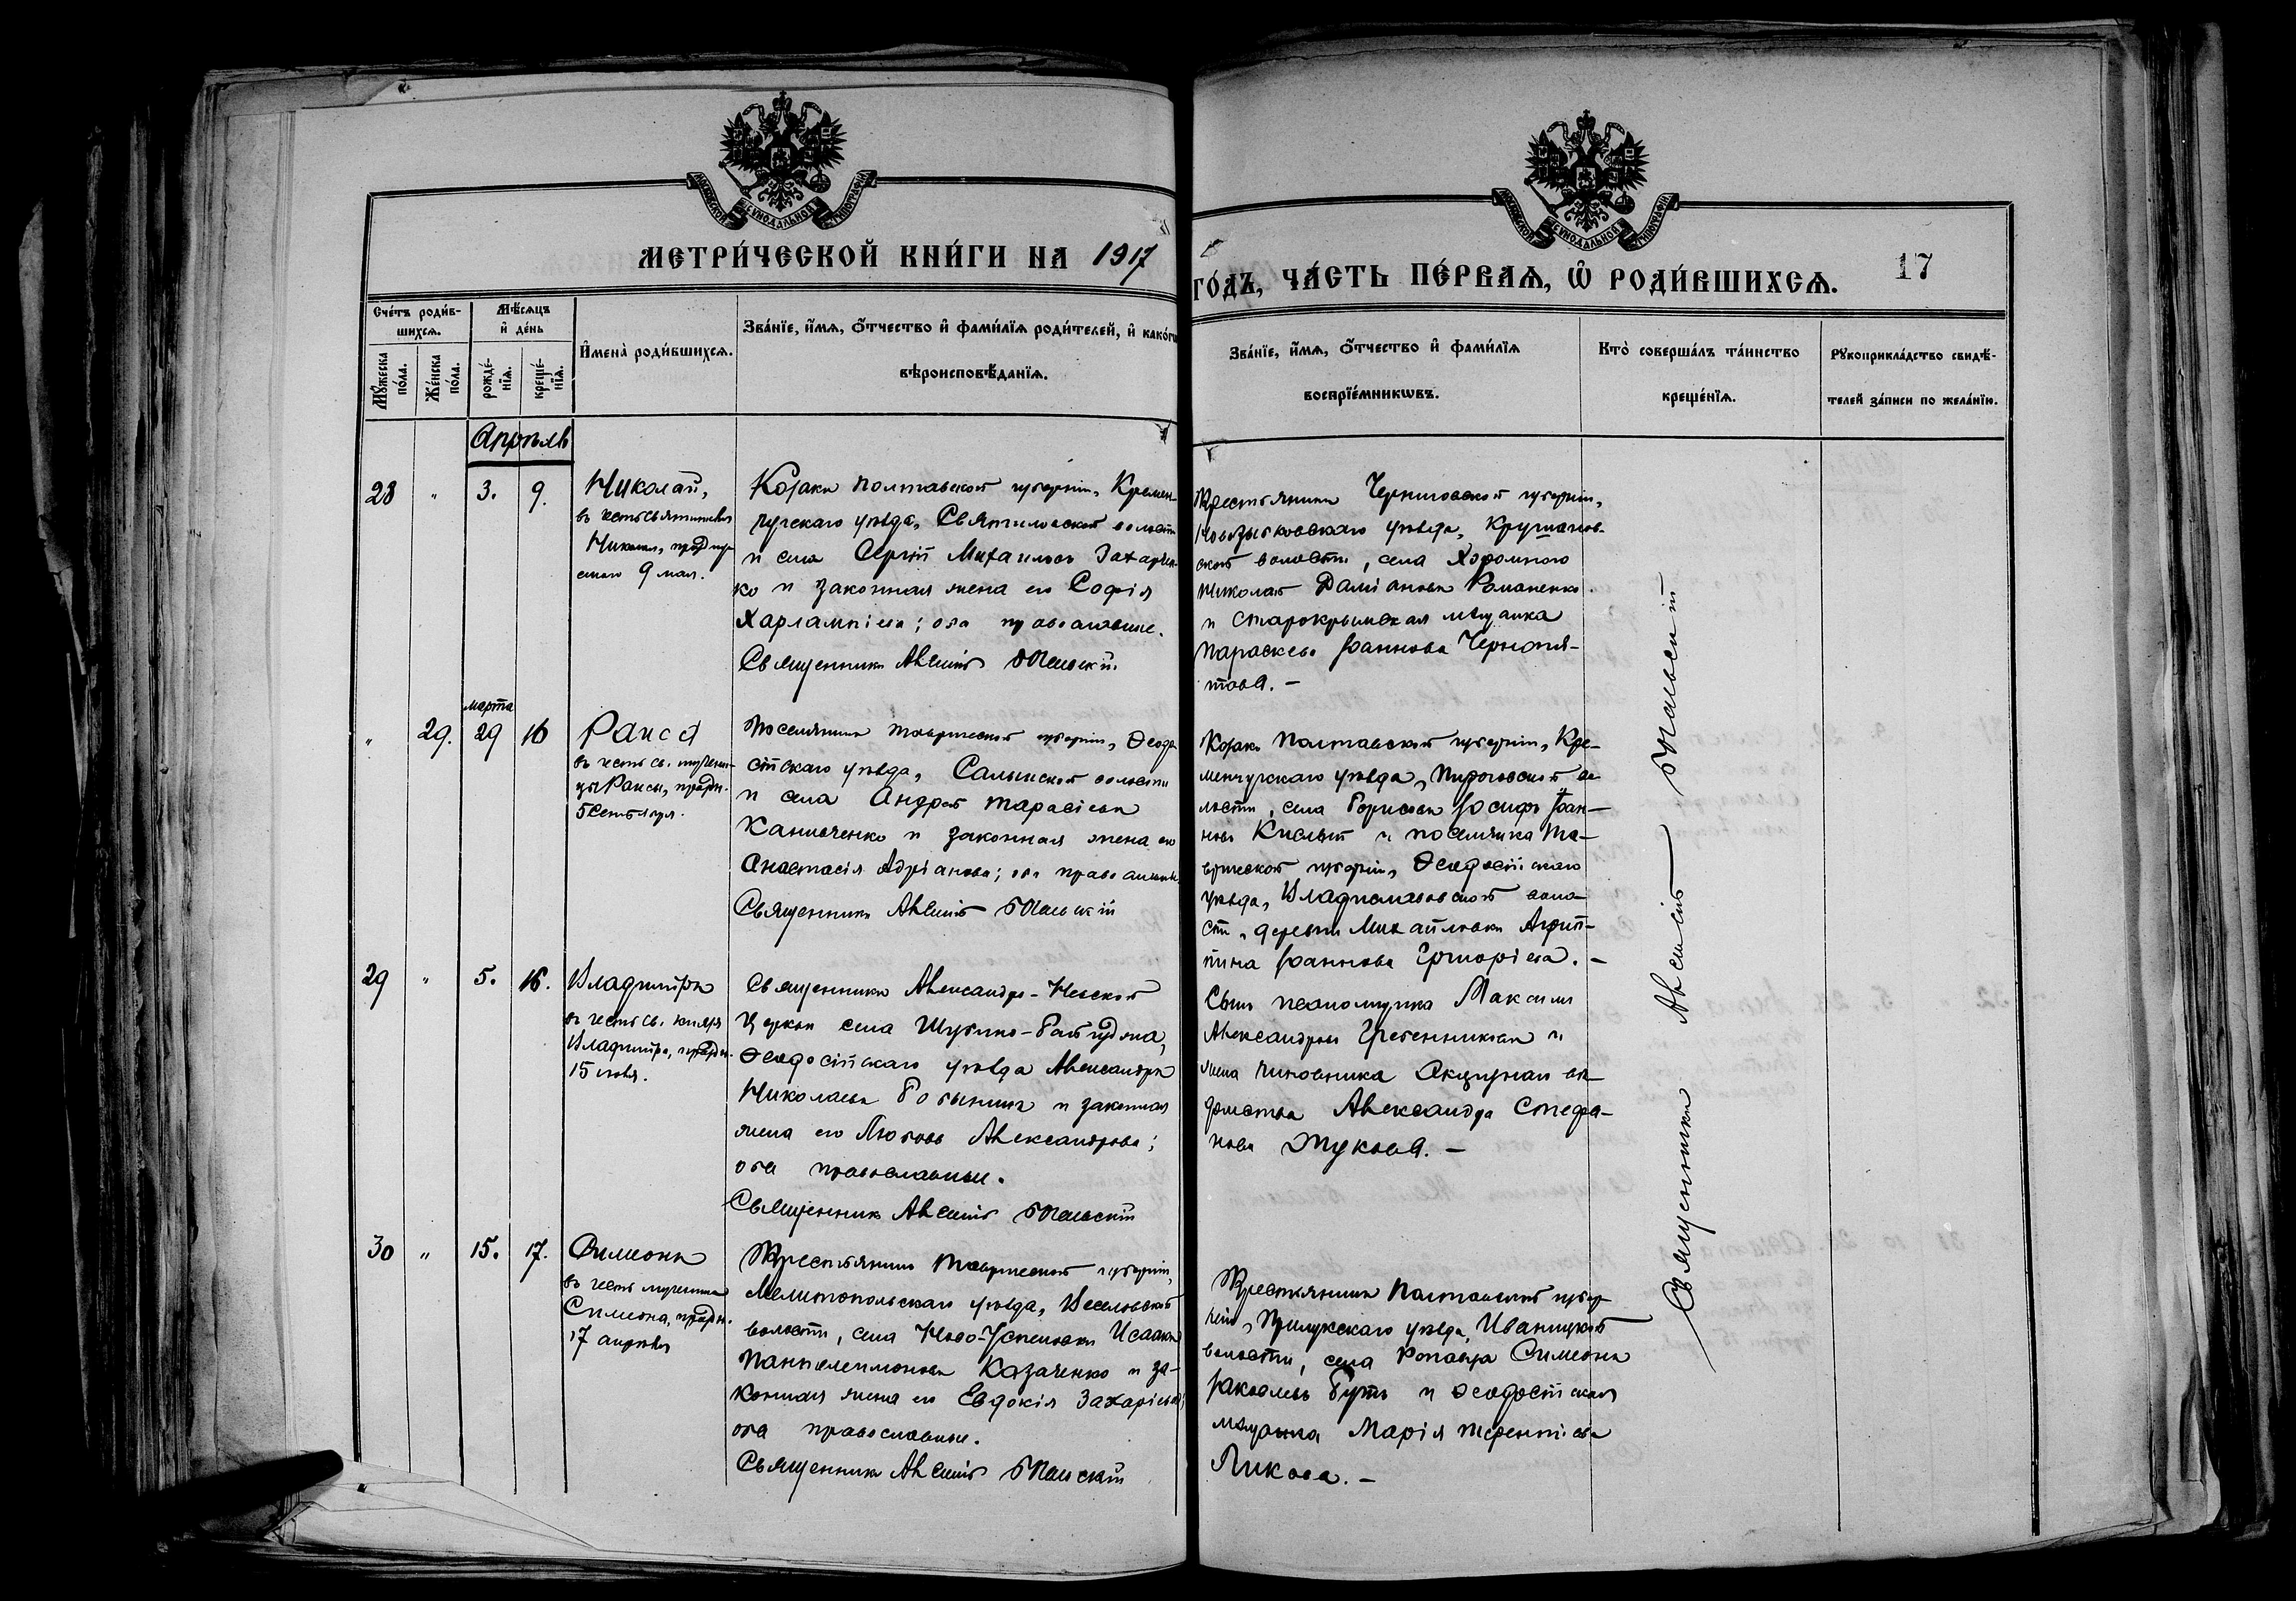 МЕТРИ́ЧЕСКОЙ КНИ́ГИ НА 1917
ГО́ДЪ, ЧА́СТЬ ПЕ́РВАѦ, Ѡ РОДИ́ВШИХСѦ. 17
Сче́тъ роди́в-
шихсѧ.
Мꙋжеска
по́ла.
Же́нска
по́ла.
Мѣ́сѧцъ
и де́нь
рожде́-
нїѧ.
креще́-
нїѧ.
Имена̀ роди́вшихсѧ.
Зва́нїе, и́мѧ, о́тчество и фами́лїѧ роди́телей, и како́гѡ
вѣроисповѣ́данїѧ.
Зва́нїе, и́мѧ, о́тчество и фами́лїѧ
воспрїе́мникѡвъ.
Кто̀ соверша́лъ та́инство
креще́нїѧ.
Рꙋкоприкла́дство свидѣ́-
телей за́писи по жела́нїю.
Апрѣль
28 " 3. 9.
Николай,
въ честь святителя
Николая, празднуе
емаго 9 мая.
Козакъ Полтавской губерніи, Кремен-
чугскаго уѣзда, Святиловской волости
и села Сергій Михаиловъ Захарчен-
ко и законная жена его Софія
Харлампіева; оба православные.
Священникъ Алексій
Крестьянинъ Черниговской губерніи,
Новозыбковскаго уѣзда,
ской волости, села Хоромного
Николай Даміановъ Романенко
и старокрымская мѣщанка
Параскева Іоаннова
това. —
марта
" 29. 29 16
Раиса
въ честь св. мучени-
цы Раисы, праздн.
5 Сентября.
Поселянинъ Таврической губерніи, Ѳеодо
сійскаго уѣзда, Салынской волости
и села Андрей Тарасіевъ
Канивченко и законная жена его
Анастасія Адріанова; оба православные.
Священникъ Алексій
Козакъ Полтавской губерніи, Кре-
менчугскаго уѣзда, Пироговской во
лости, села Борисовки Іосифъ Іоан-
новъ Кислый и поселянка Та-
врической губерніи, Ѳеодосійскаго
уѣзда, Владиславовской воло-
сти, деревни Михайловки Агрип-
пина Іоаннова Григоріева. —
29 " 5. 16.
Владиміръ
въ честь св. князя
Владиміра, праздн.
15 іюля.
Священникъ Александро-Невской
церкви села Шубино-Байгуджа,
Ѳеодосійскаго уѣзда Александръ
Николаевъ Бобынинъ и законная
жена его Любовь Александрова;
оба православные.
Священникъ Алексій
Сынъ псаломщика Максимъ
Александровъ Гребенниковъ и
жена чиновника Акцизнаго вѣ-
домства Александра Стефа-
нова Жукова. —
30 " 15. 17.
Симеонъ
въ честь мученика
Симеона, праздн.
17 апрѣля
Крестьянинъ Таврической губерніи,
Мелитопольскаго уѣзда, Веселовской
волости, села Ново-Успеновки Исаакъ
Пантелеимоновъ Казаченко и за-
конная жена его Евдокія Захаріева;
оба православные.
Священникъ Алексій
Крестьянинъ Полтавской губер-
ніи, Прилукскаго уѣзда, Иваницкой
волости, села Симеонъ
Іаковлевъ Бутъ и ѳеодосійская
мѣщанка Марія Терентіева
Ликова. —
Священникъ Алексій